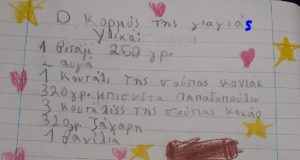 Ο Κορμός της γιαγιάς
Υλικά:
1 βιτάμ 250 γρ.
2 αυγά
1 κουτάλι της σούπας κονιάκ
320γρ. μπισκότα Παπαδοπούλου
3 κουταλιές της σούπας κακάο
320γρ ζάχαρη
1 βανίλια